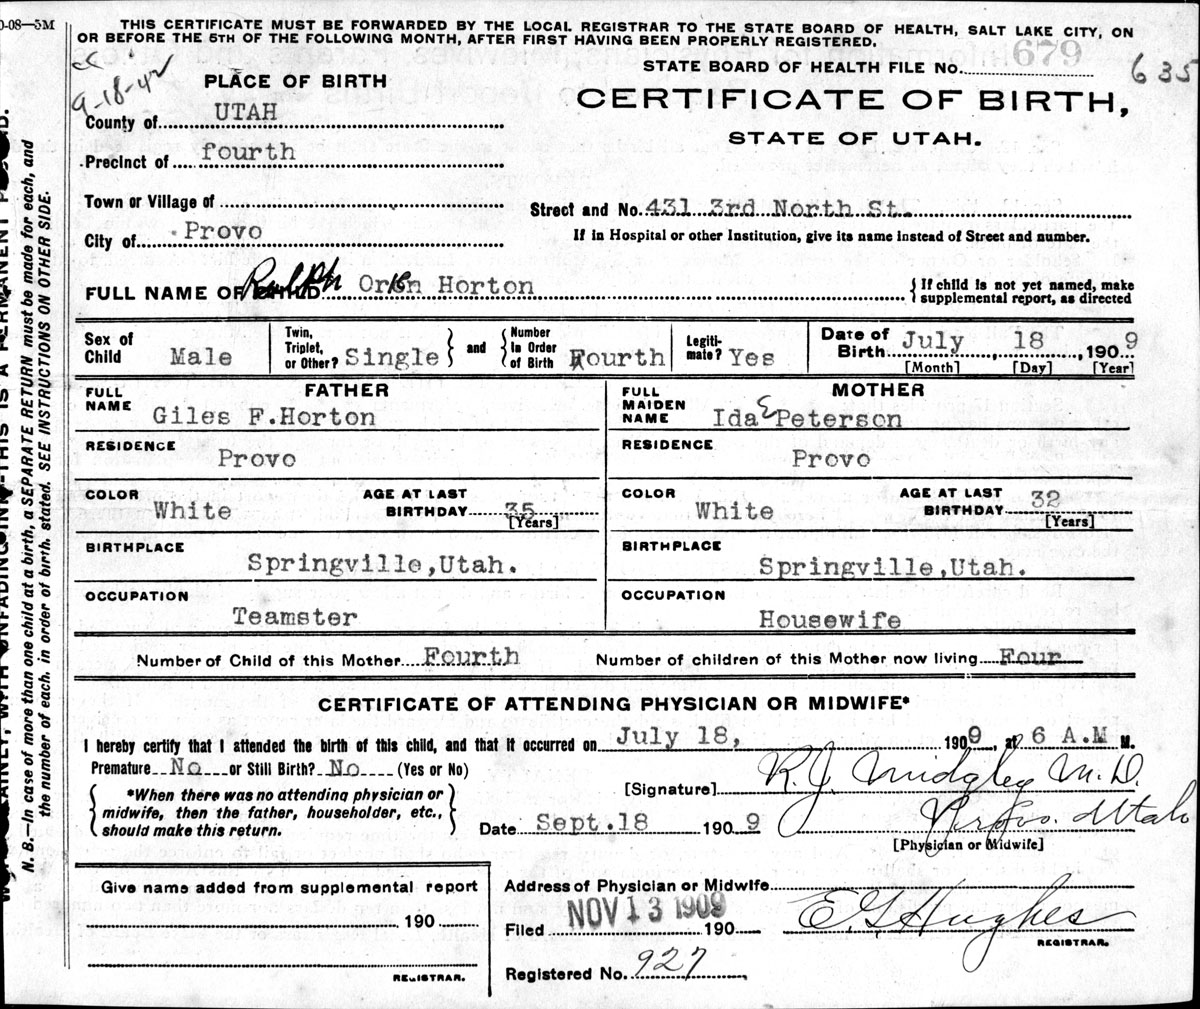 0-08—5M
THIS CERTIFICATE MUST BE FORWARDED BY THE LOCAL REGISTRAR TO THE STATE BOARD OF HEALTH, SALT LAKE CITY, ON
OR BEFORE THE 5TH OF THE FOLLOWING MONTH, AFTER FIRST HAVING BEEN PROPERLY REGISTERED.
STATE BOARD OF HEALTH FILE NO. 679
635
9-18-42
PLACE OF BIRTH
CERTIFICATE OF BIRTH,
STATE OF UTAH.
County of UTAH
Precinct of fourth
Town or Village of
Street and No. 431 3rd North St.
City of Provo
If in Hospital or other Institution, give its name instead of Street and number.
FULL NAME OF CHILD Ralph Oren Horton
If child is not yet named, make
supplemental report, as directed
Sex of Child Male
Twin, Triplet, or Other? Single
and
Number In Order of Birth Fourth
Legiti-mate? Yes
Date of Birth July 18, 1909
[Month] [Day] [Year]
FATHER
FULL NAME Giles F.Horton
RESIDENCE Provo
COLOR White
AGE AT LAST BIRTHDAY 35
[Years]
BIRTHPLACE Springville,Utah.
OCCUPATION Teamster
MOTHER
FULL MAIDEN NAME Ida E Peterson
RESIDENCE Provo
COLOR White
AGE AT LAST BIRTHDAY 32
[Years]
BIRTHPLACE Springville,Utah.
OCCUPATION Housewife
Number of Child of this Mother Fourth
Number of children of this Mother now living Four
CERTIFICATE OF ATTENDING PHYSICIAN OR MIDWIFE*
I hereby certify that I attended the birth of this child, and that it occurred on July 18, 1909, at 6 A.M M.
Premature No or Still Birth? No (Yes or No)
*When there was no attending physician or
midwife, then the father, householder, etc.,
should make this return.
[Signature] R. J. Midgley M.D.
Date Sept.18 1909
Provo. Utah
[Physician or Midwife]
Give name added from supplemental report
190
REGISTRAR.
Address of Physician or Midwife
Filed NOV 13 1909 190
E G Hughes
REGISTRAR.
Registered No. 927
N. B.—In case of more than one child at a birth, a SEPARATE RETURN must be made for each, and
the number of each, in order of birth, stated. SEE INSTRUCTIONS ON OTHER SIDE.
PLAINLY, WITH UNFADING INK—THIS IS A PERMANENT